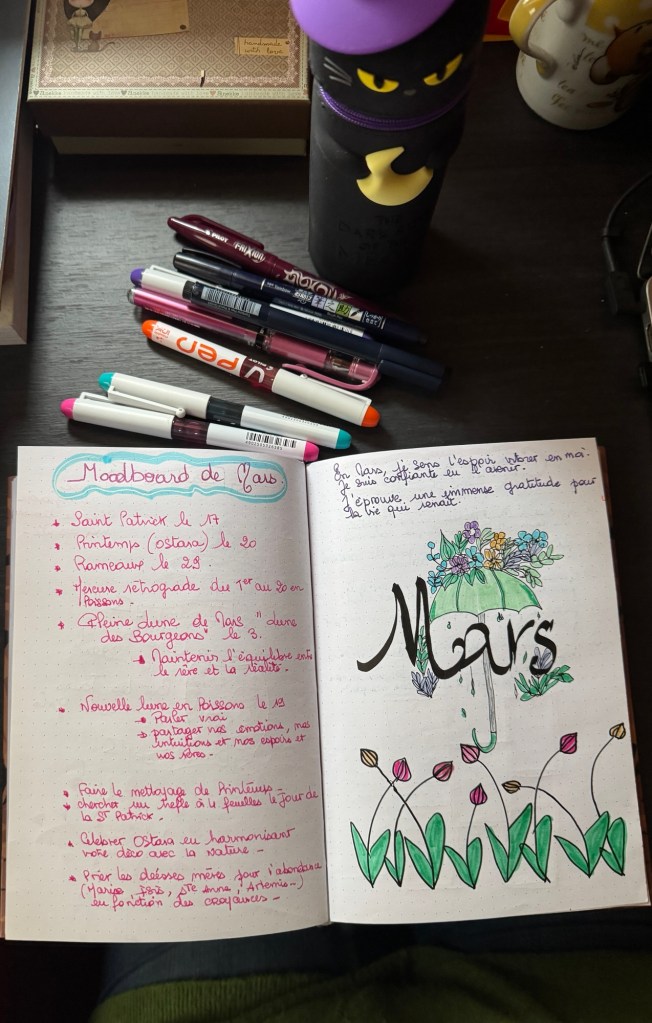 handmade
with love
PILOT FRIXION
PEN
Moodboard de Mars.
Saint Patrick le 17
Printemps (Ostara) le 20
Rameaux le 29.
Mercure rétrograde du 1er au 20 en
Poissons.
Pleine lune de Mars "lune
des Bourgeons" le 3.
Maintenir l'équilibre entre
le rêve et la réalité.
Nouvelle lune en Poissons le 19
Parler vrai
partager nos émotions, nos
intuitions et nos espoirs et
nos rêves-
Faire le nettoyage de Printemps-
chercher un trèfle à 4 feuilles le jour de
la St Patrick.
Célébrer Ostara en harmonisant
votre déco avec la nature.-
Prier les déesses mères pour l'abondance
(Marie, Isis, Ste Anne, Artemis-)
en fonction des croyances-
En Mars, je sens l'espoir vibrer en moi.
Je suis confiante en l'avenir.
J'éprouve une immense gratitude pour
la vie qui renait.
Mars